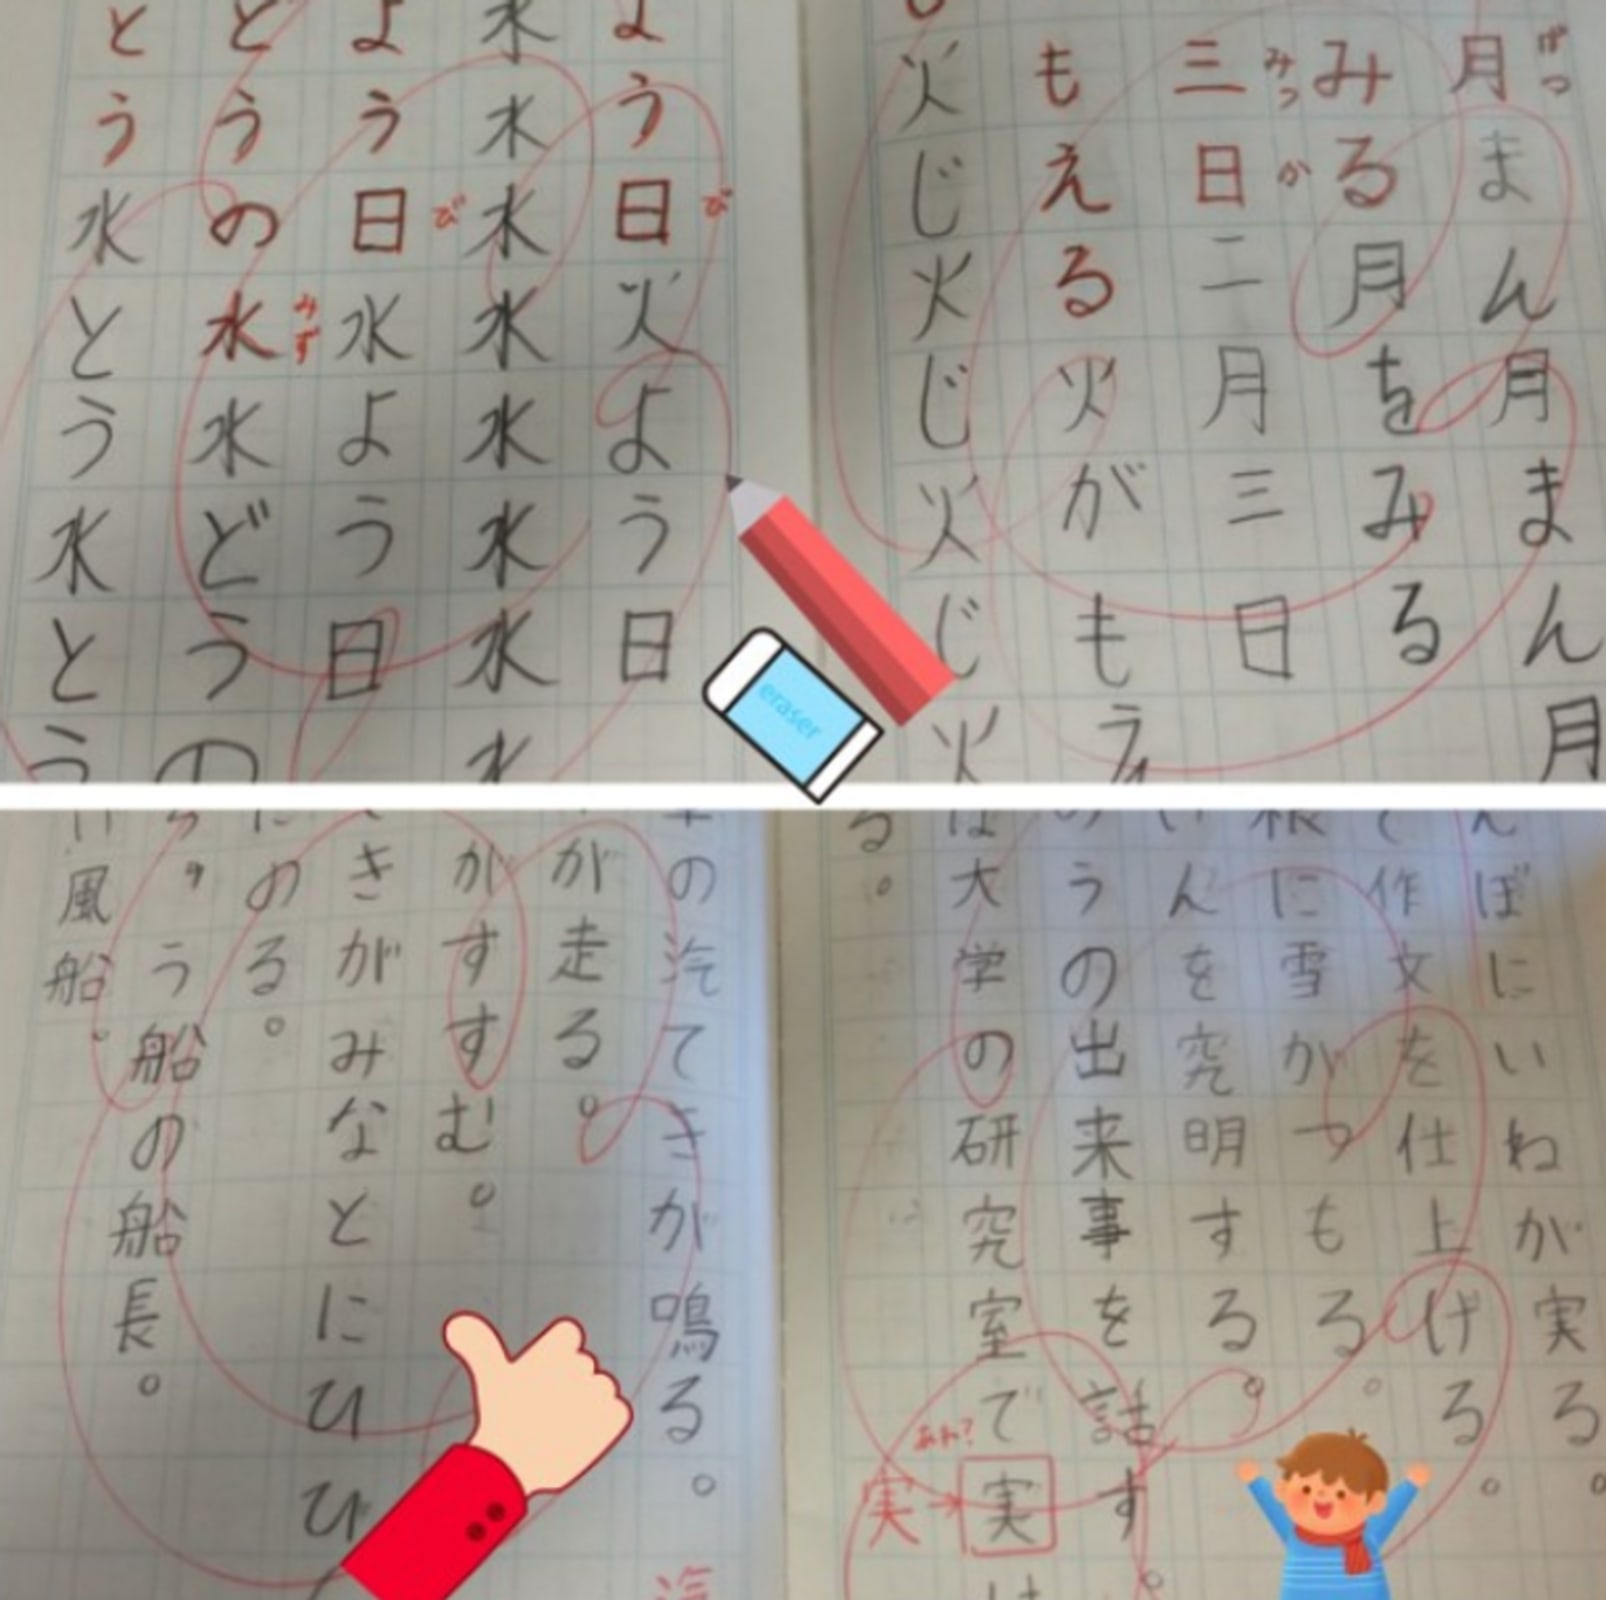 月まん月まん月
げつ
みる月をみる
三日二月三日
みっか
もえる火がもえ
火じ火じ火じ火
よう日火よう日
び
水水水水水水水水
よう日水よう日
び
どうの水水どうの
みず
とう水とう水とう
eraser
んぼにいねが実る。
て作文を仕上げる。
根に雪がつもる。
いんを究明する。
のうの出来事を話す。
は大学の研究室で実
あれ?
実→
る。
の汽てきが鳴る。
汽
が走る。
がすすむ。
きがみなとにひひ
にのる。
う船の船長。
風船。